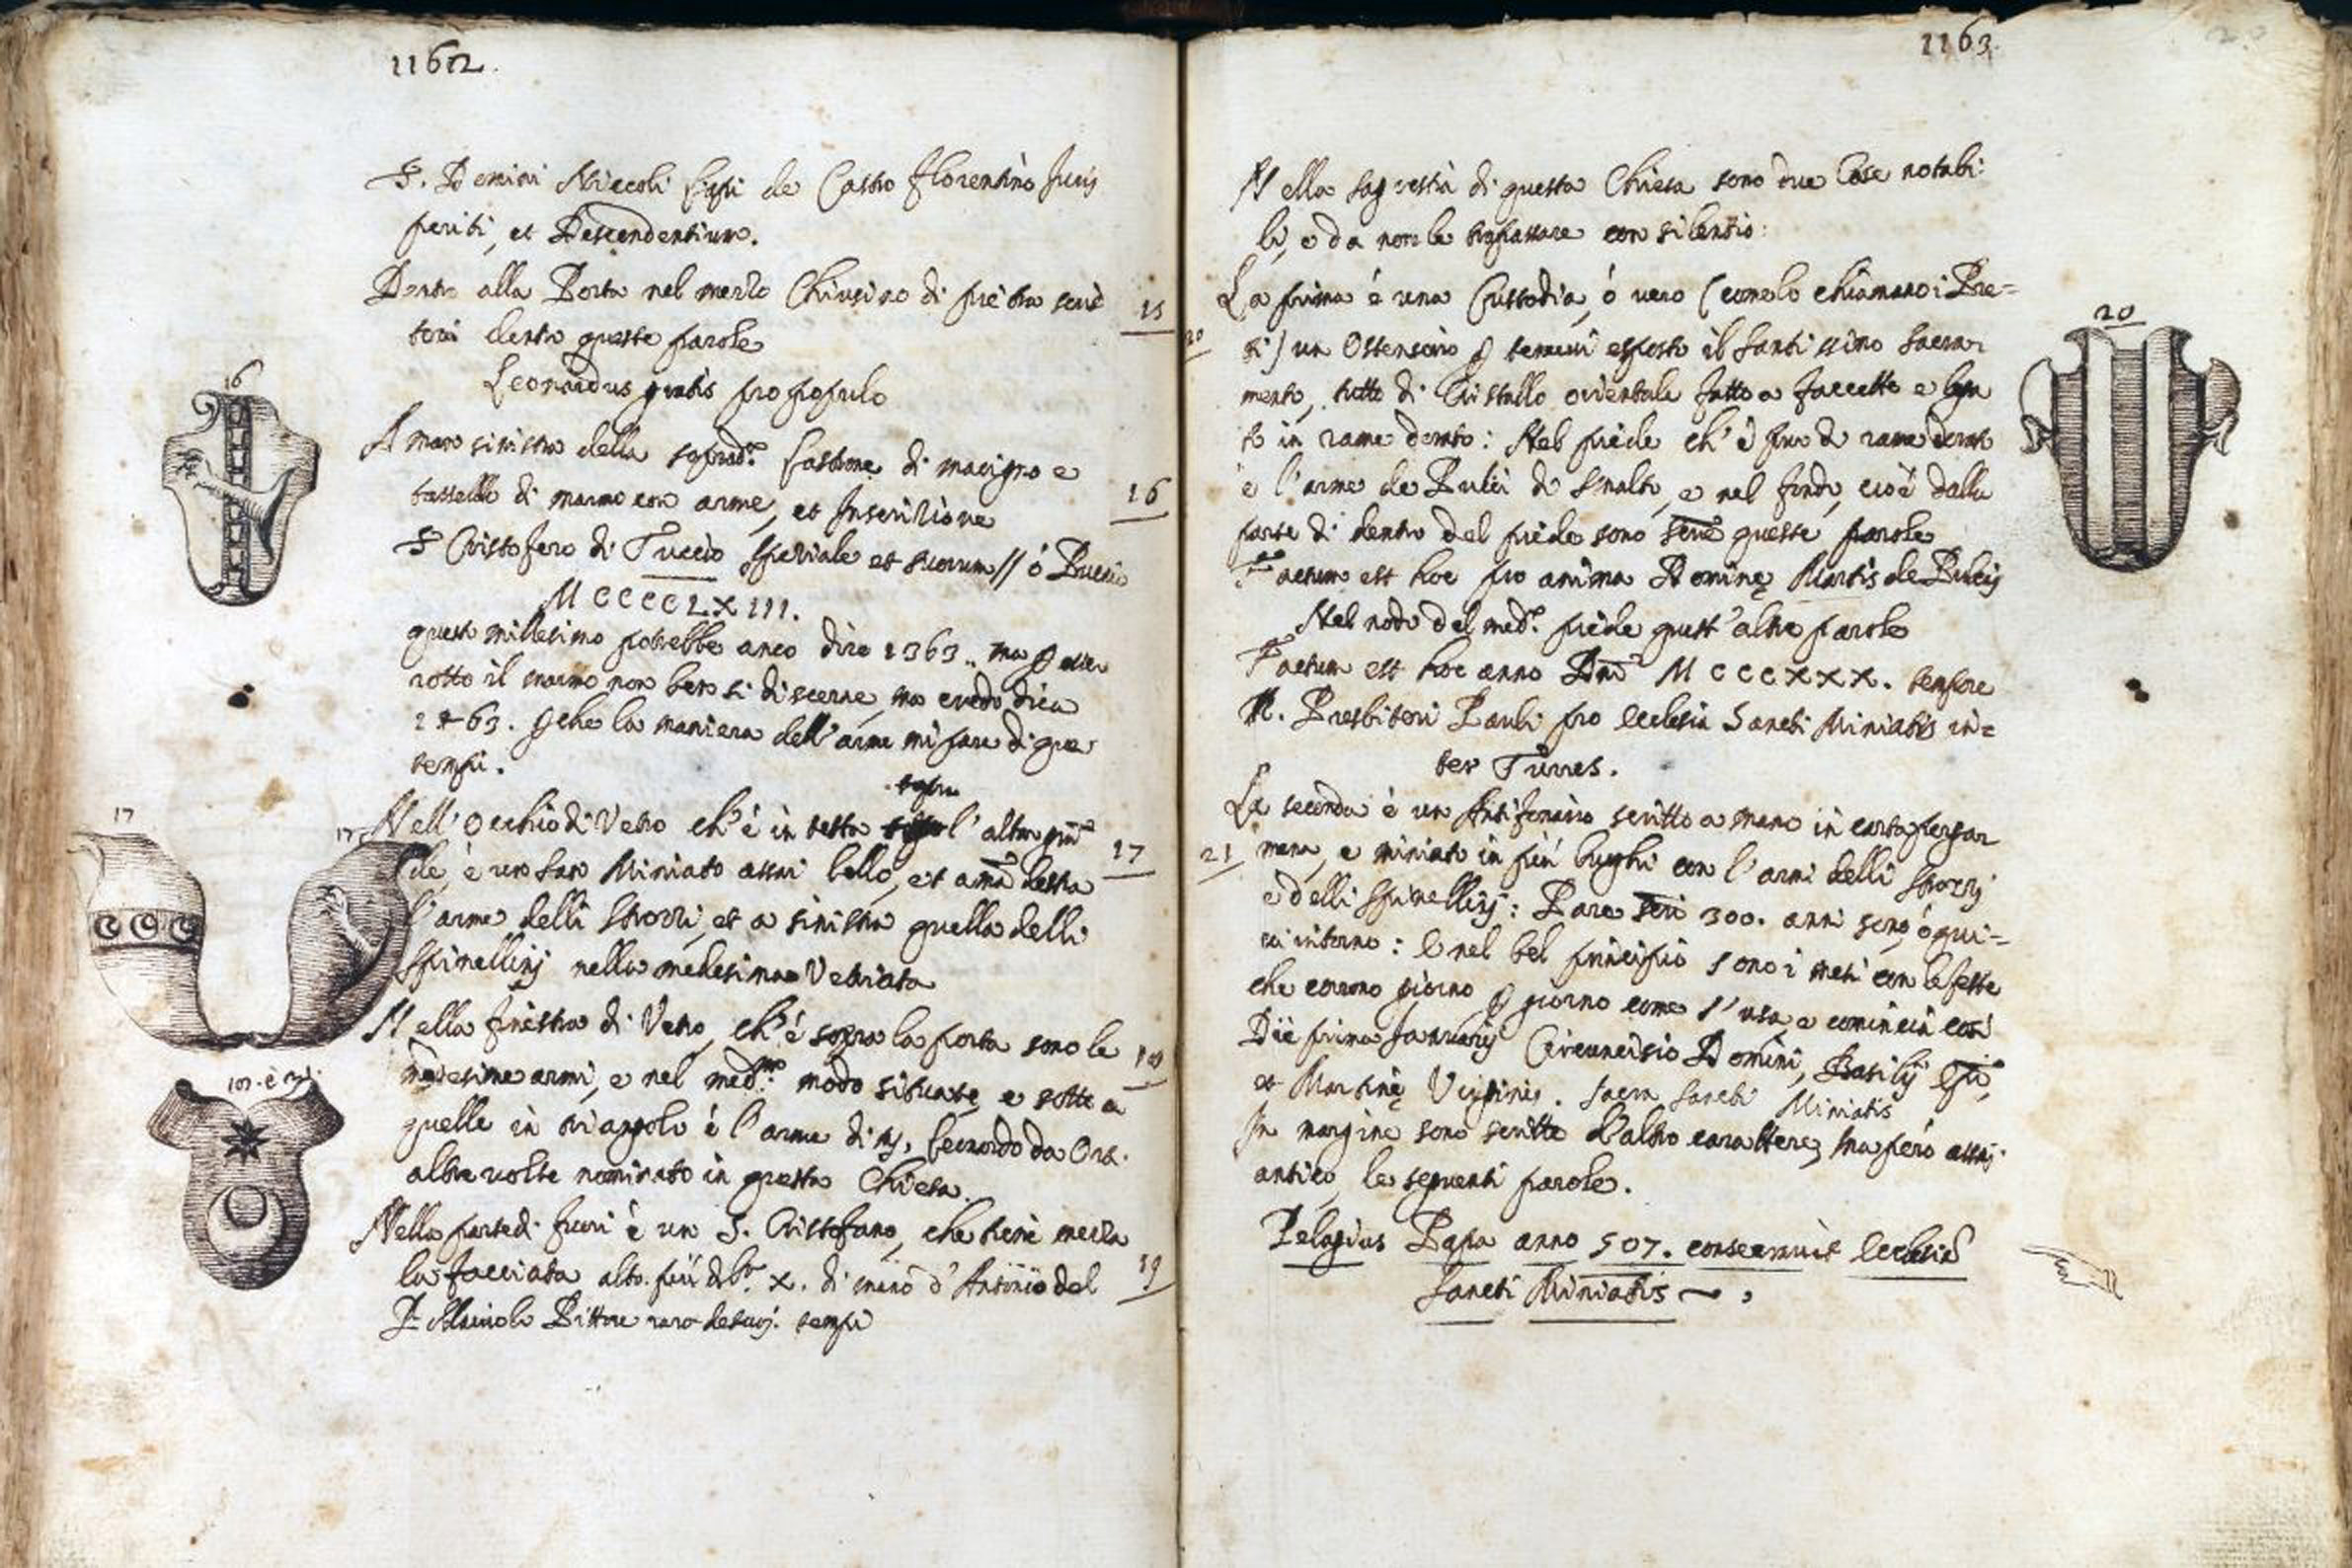 1162
S. Domini Niccoli de Castro Florentino Juris
periti, et Descendentium.
Dentro alla Porta nel mezzo Chiusino di pietra
dentro queste parole
15
Leonardus pro populo
A mano sinistra della soprad.ª di macigno e
tassello di marmo con arme, et Inscrizione
16
16
S Cristofero di Tuccio Speziale et suorum // ó
MCCCCLXIII.
questo millesimo potrebbe anco dire 1363.. ma
rotto il marmo non ben si discerne, ma credo dica
1463. che la maniera dell'arme mi pare di que
tempi.
sopra
Nell'Occhio di Vetro ch'é in testa l'altar
17
17
17
de, é un San Miniato assai bello, et a destra
l'arme delli Strozzi, et a sinistra quella delli
Spinellini nella medesima Vetriata
Nella finestra di Vetro, ch'é sopra la porta sono le
18
medesime armi, e nel med.mo modo situate, e sotto a
quelle in triangolo é l'arme di
altre volte nominato in questa Chiesa.
Nella parte di fuori é un S. Cristofano, che tiene mezza
la facciata alto più di br. X. di mano d'Antonio del
19
Pittore raro de suoi tempi
1163
Nella sagrestia di questa Chiesa sono due Cose notabi:
li, e da non le trapassare con silenzio:
La prima é una Custodia, ó vero (come lo chiamano i Pre=
20
20
ti) un Ostensorio tenervi esposto il Santissimo Sacra-
mento, tutto di Cristallo orientale fatto a faccette e lega
to in rame dorato: Nel piede ch'é pure di rame dorato
é l'arme de Pulci di smalto, e nel fondo, cioé dalla
parte di dentro del piede sono queste parole
Factum est hoc pro anima Dominę Martis de Pulcis
Nel nodo del med.º piede quest'altre parole
Factum est hoc anno Dni MCCCXXX. tempore
Presbiteri Pauli pro Ecclesia Sancti Miniatis in=
ter Turres.
La seconda é un Antifonario scritto a mano in carta pergar
21
mena, e miniato in più luoghi con l'armi delli Strozzi
e delli Spinellini: Pare 300. anni sono, ó qui=
vi intorno: E nel bel principio sono i mesi con le feste
che corrono giorno giorno come s'usa, e comincia così
Die prima Januarij Circumcisio Domini, Basilij
et Martinę Virginis. Sacra Sancti Miniatis
In margine sono scritte d'altro carattere, ma peró assai
antico, le seguenti parole.
Pelagius Papa anno 507. consecravit Ecclesiã
Sancti Miniatis